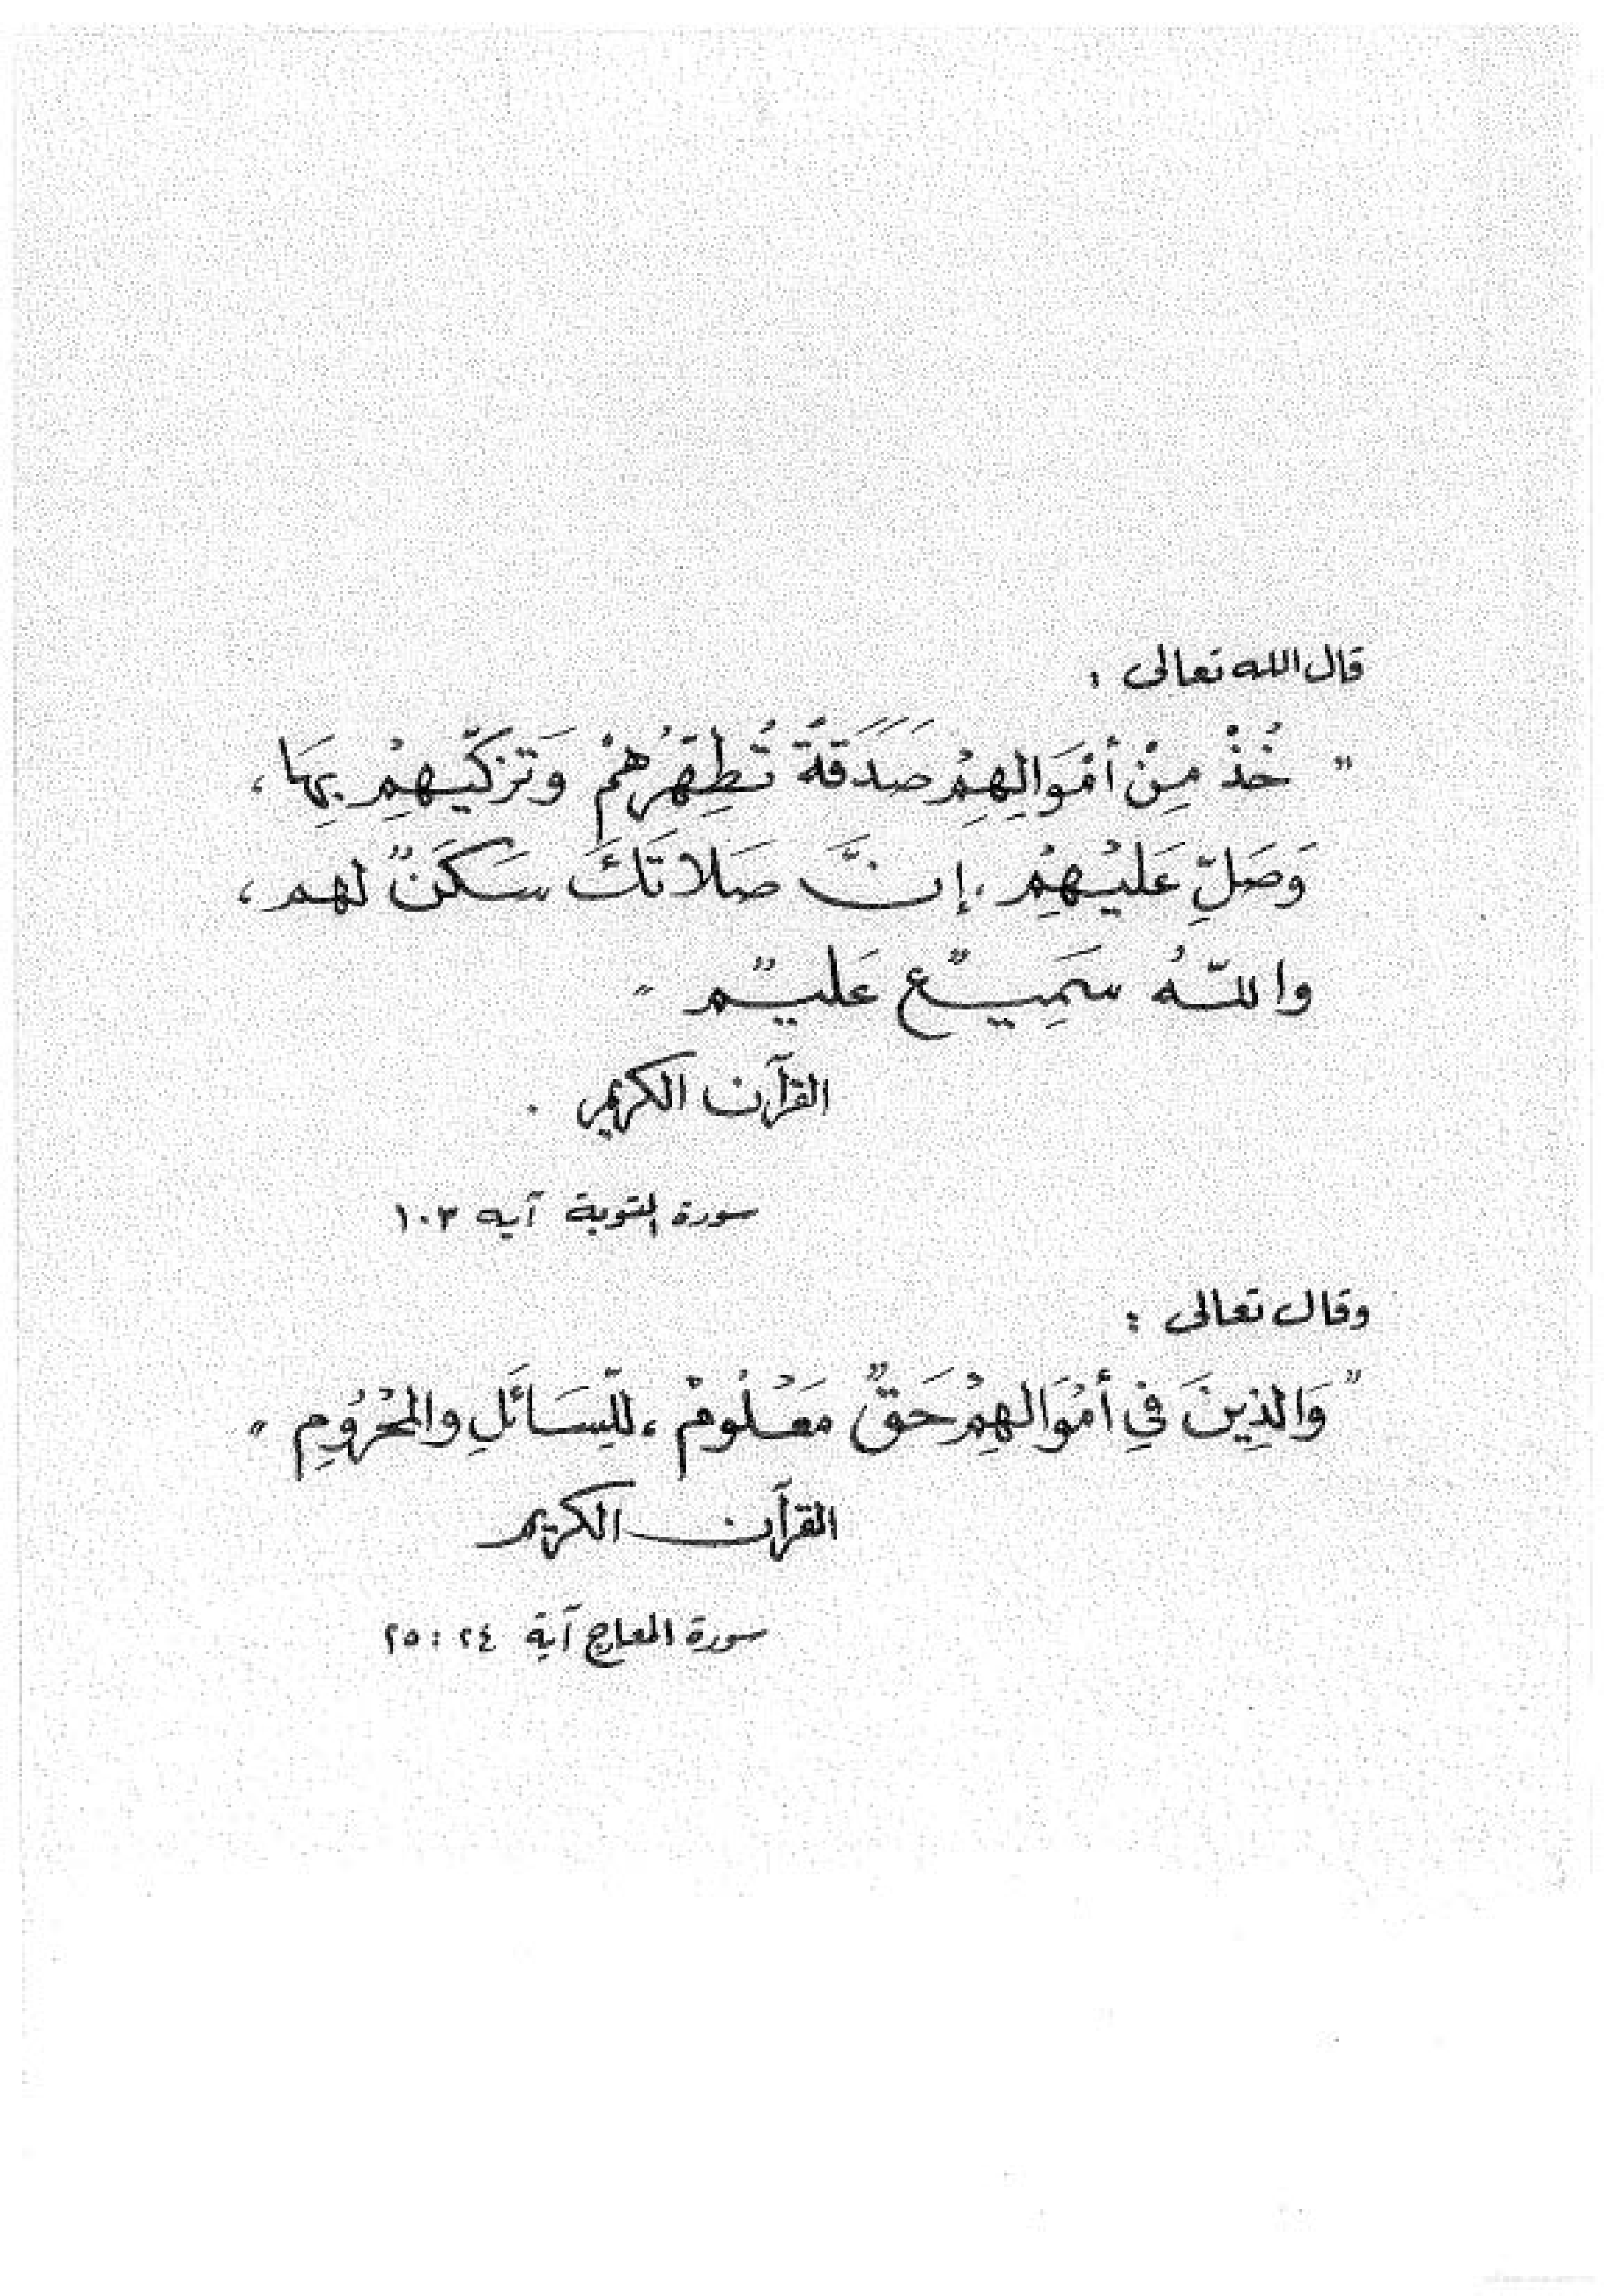 قال الله تعالى :
" خُذْ مِنْ أمْوَالِهِمْ صَدَقَةً تُطَهِّرُهُمْ وَتزكّيهِمْ بِهَا ،
وَصَلِّ عَلَيْهِمْ ، إنَّ صَلاتَكَ سَكَنٌ لهم ،
واللّهُ سَمِيعٌ عَليمٌ "
القرآن الكريم .
سورة التوبة آية ١٠٣
وقال تعالى :
" وَالذِينَ فِي أمْوَالهِمْ حَقٌ مَعْلُومْ ، للِسَائَلِ والمحْرُومِ "
القرآن الكريم
سورة المعارج آية ٢٤ : ٢٥